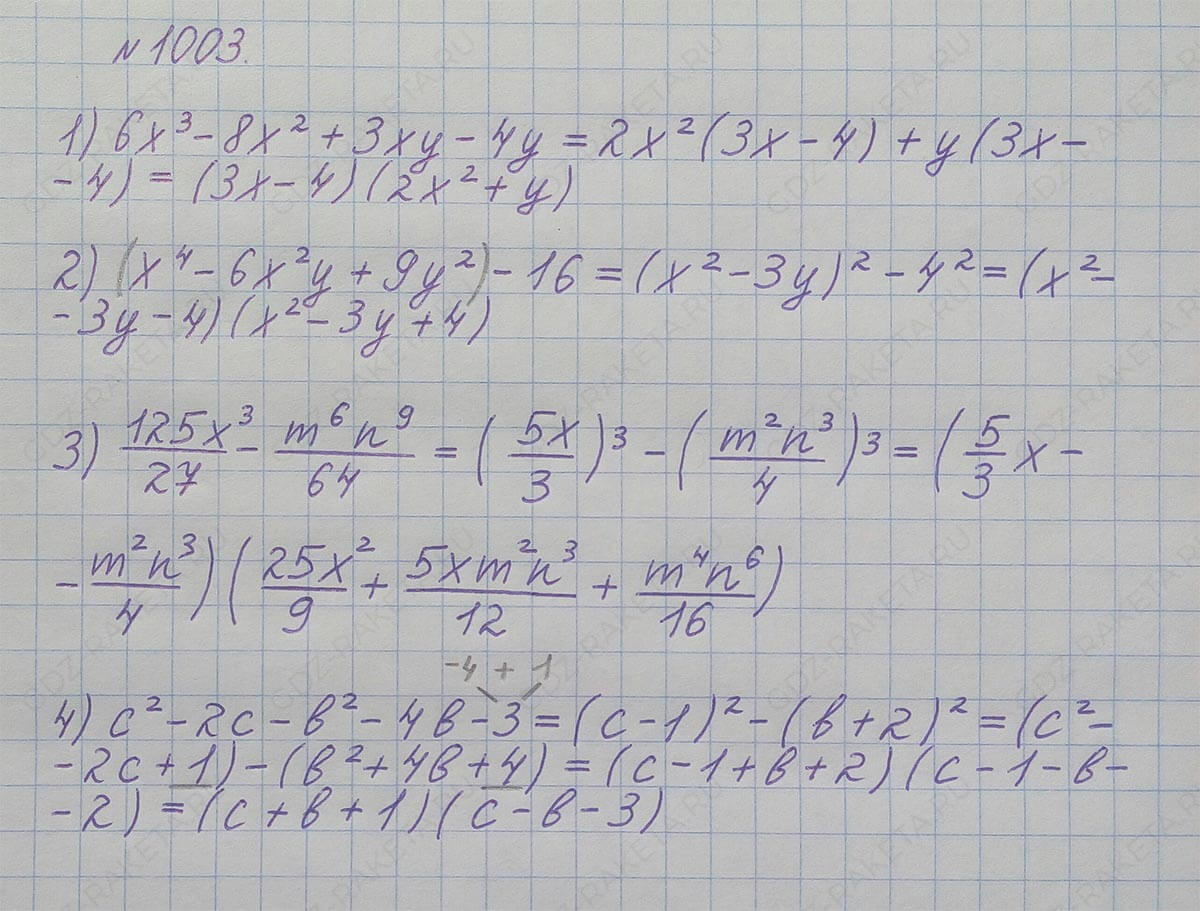 №1003.
1) 6x³ - 8x² + 3xy - 4y = 2x²(3x - 4) + y(3x -
- 4) = (3x - 4)(2x² + y)
2) (x⁴ - 6x²y + 9y²) - 16 = (x² - 3y)² - 4² = (x² -
- 3y - 4)(x² - 3y + 4)
3) 125x³/27 - m⁶n⁹/64 = (5x/3)³ - (m²n³/4)³ = (5/3 x -
- m²n³/4)(25x²/9 + 5xm²n³/12 + m⁴n⁶/16)
-4 + 1
4) c² - 2c - в² - 4в - 3 = (c - 1)² - (в + 2)² = (c² -
- 2c + 1) - (в² + 4в + 4) = (c - 1 + в + 2)(c - 1 - в -
- 2) = (c + в + 1)(c - в - 3)
GDZ-RAKETA.RU